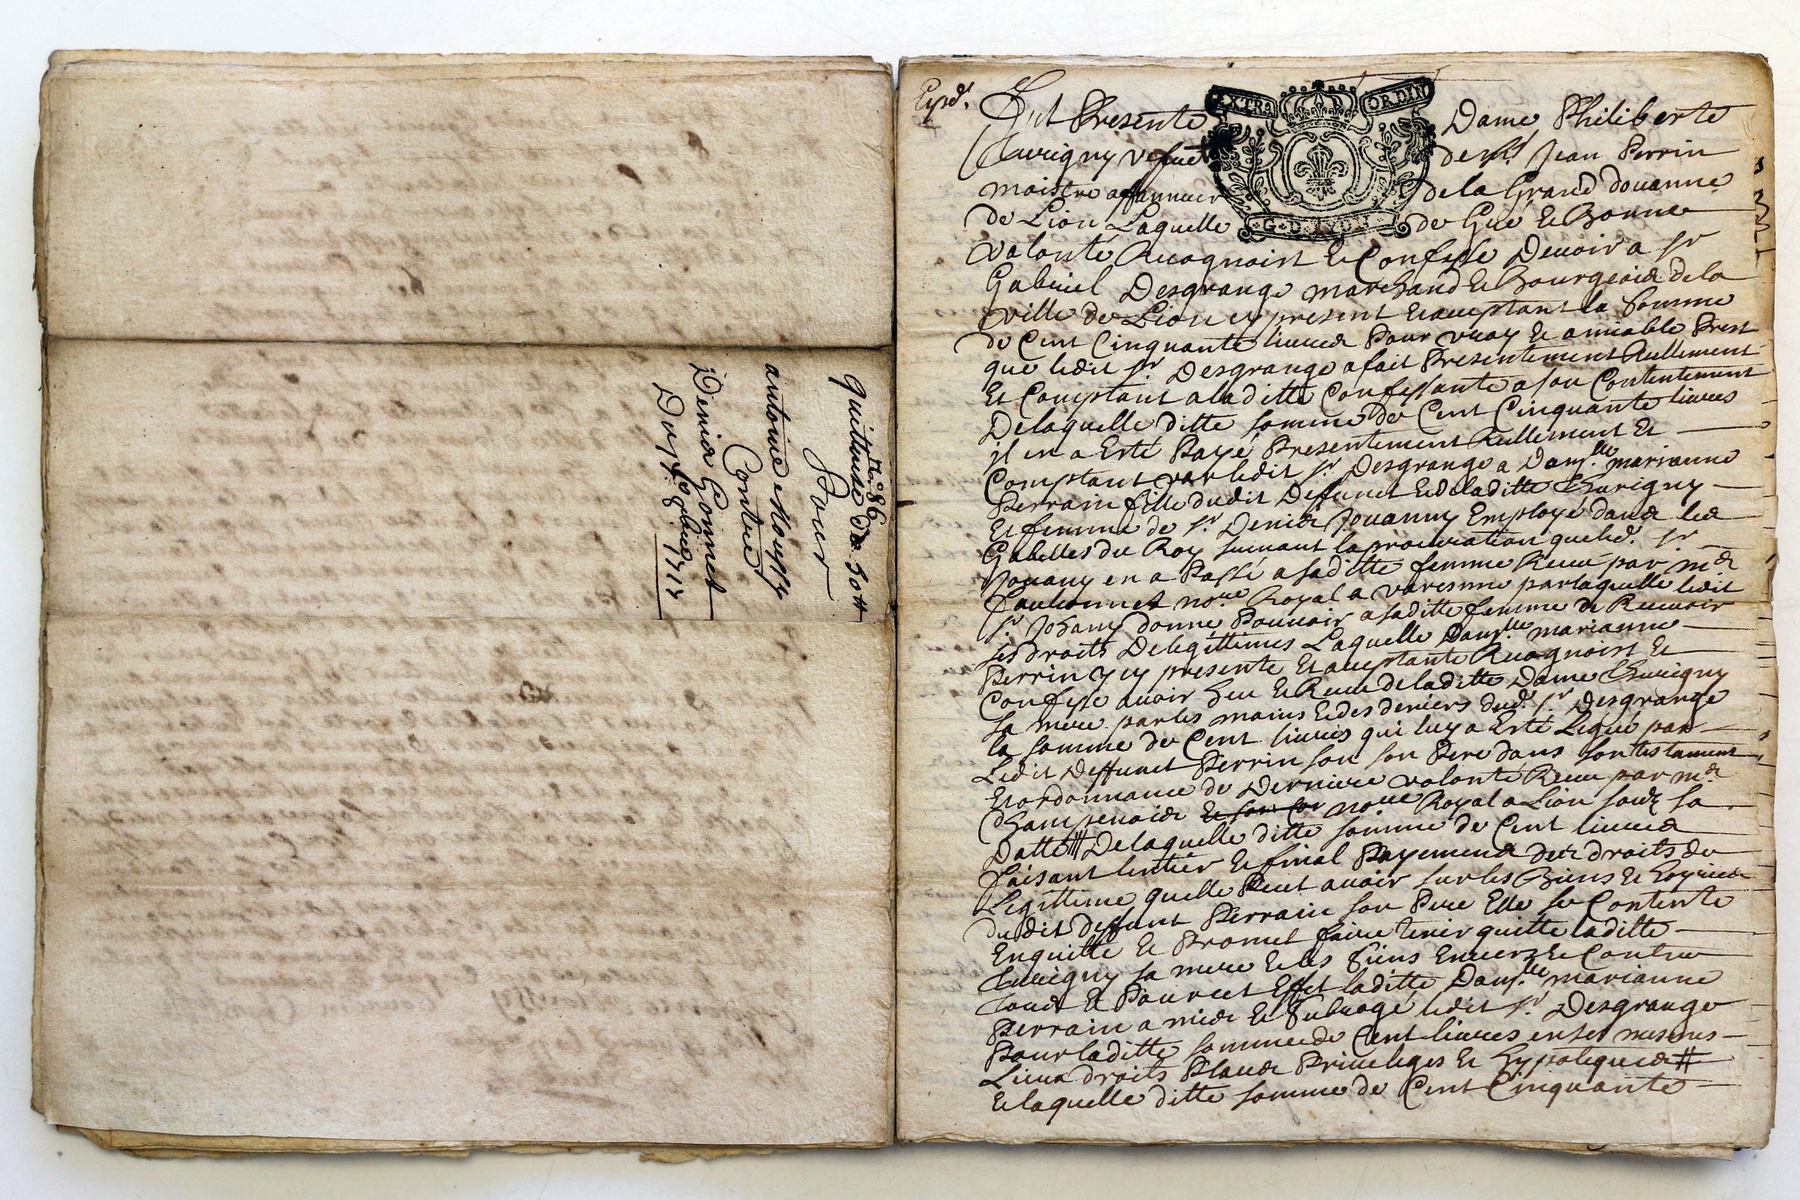 quittance de 50 ₶
n.° 86
Pour
antoine
Contre
Denis Gonnet
Du 1712
Exped.
EXTRA ORDIN
G. D. LYON
Fut Presente Dame Philiberte
Thurigny vefue de Jean Perrin
maistre affanneur de la Grand douanne
de Lion Laquelle de Gré et Bonne
volonté Recognoist et Confesse Devoir a sr
Gabriel Desgrange marchand et Bourgeois de la
ville de Lion cy present et acceptant la somme
de Cent Cinquante livres Pour vray et amiable Prest
que ledit sr Desgrange a fait Presentement Reellement
et Comptant a laditte Confessante a son Contentement
De laquelle ditte somme de Cent Cinquante livres
il en a Esté Payé Presentement Reellement et
Comptant par ledit sr Desgrange a Damlle marianne
Perrain fille dudit Deffunct et de laditte Thurigny
et femme de sr Denis Jouanny Employé dans les
Gabelles du Roy suivant la procuration que led. sr
Jouany en a Passé a saditte femme Receu par me
nore Royal a varenne par laquelle ledit
sr Johany donne Pouvoir a saditte femme de Recevoir
ses droits De legittimes Laquelle Damlle marianne
Perrin y cy presente et acceptante Recognoist et
Confesse avoir heu et Receu de laditte Dame Thurigny
sa mere par les mains et des deniers dud. sr Desgrange
la somme de Cent livres qui luy a Esté Legué par
Ledit Deffunct Perrin son son Pere dans son testament
et ordonnance de Derniere volonté Receu par me
Champenois nore Royal a Lion soubz sa
Datte De laquelle ditte somme de Cent livres
faisant lentier et final Payement des droits de
Legittime quelle Peut avoir sur les Biens et hoyries
dudit deffunt Perrain son Pere Elle se Contente
En quitte et Promet faire tenir quitte laditte
Thurigny sa mere et les siens Envers et Contre
tous et Pour cet Effet laditte Damlle marianne
Perrain a mis et subrogé ledit sr Desgrange
Pour laditte somme de Cent livres en ses mesmes
Lieux droits Place Privileges et hypoteques #
et laquelle ditte somme de Cent Cinquante